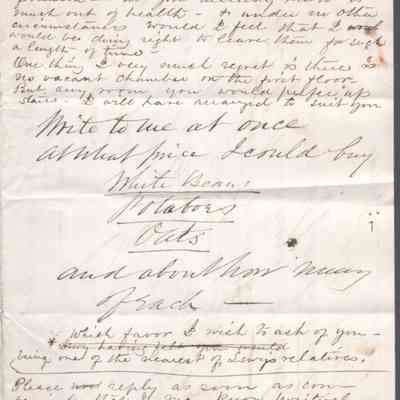 much out of health - & under no other
circumstances would I feel that I
would be doing right to leave them for such
a length of time -
One thing I very much regret is there is
no vacant chamber on the first floor
But any room you would prefer up
stairs. I will have arranged to suit you
Write to me at once
At what price I could buy
White Beans
Potatoes
Oats
and about how many
of each —
Which favor I wish to ask of you -
* Levy having felt you would
being one of the nearest of Levys relatives.
Please reply as soon as con-